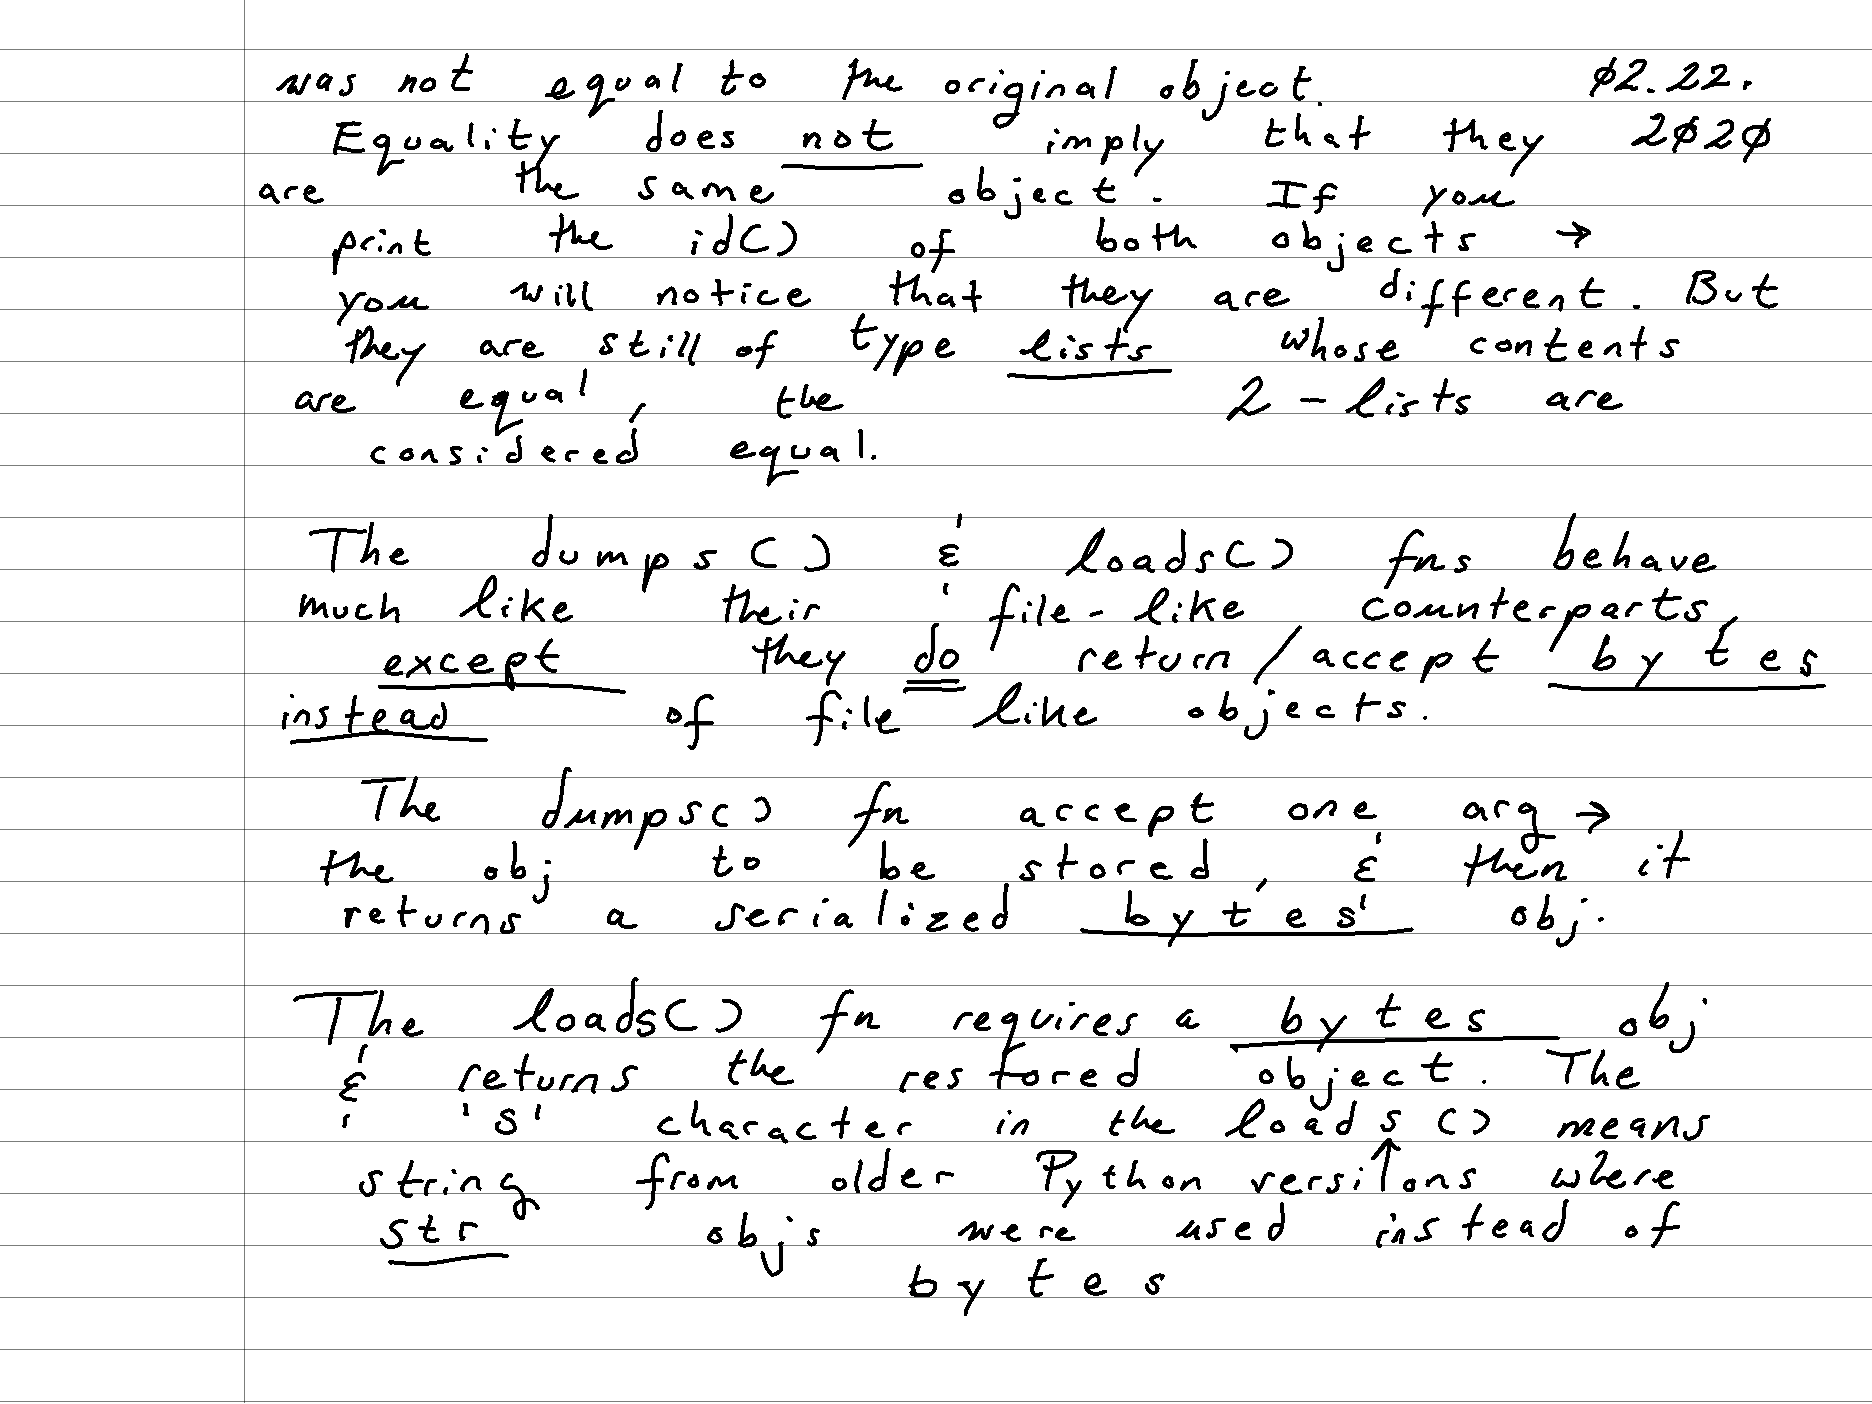 was not equal to the original object. 02.22.
Equality does not imply that they 2020
are the same object. If you
print the id() of both objects →
you will notice that they are different. But
they are still of type lists whose contents
are equal, the 2 - lists are
considered equal.
The dumps() & loads() fns behave
much like their file-like counterparts,
except they do return/accept bytes
instead of file like objects.
The dumps() fn accept one arg →
the obj to be stored, & then it
returns a serialized bytes' obj.
The loads() fn requires a bytes obj
& returns the restored object. The
's' character in the loads() means
string from older Python versions where
str objs were used instead of
bytes